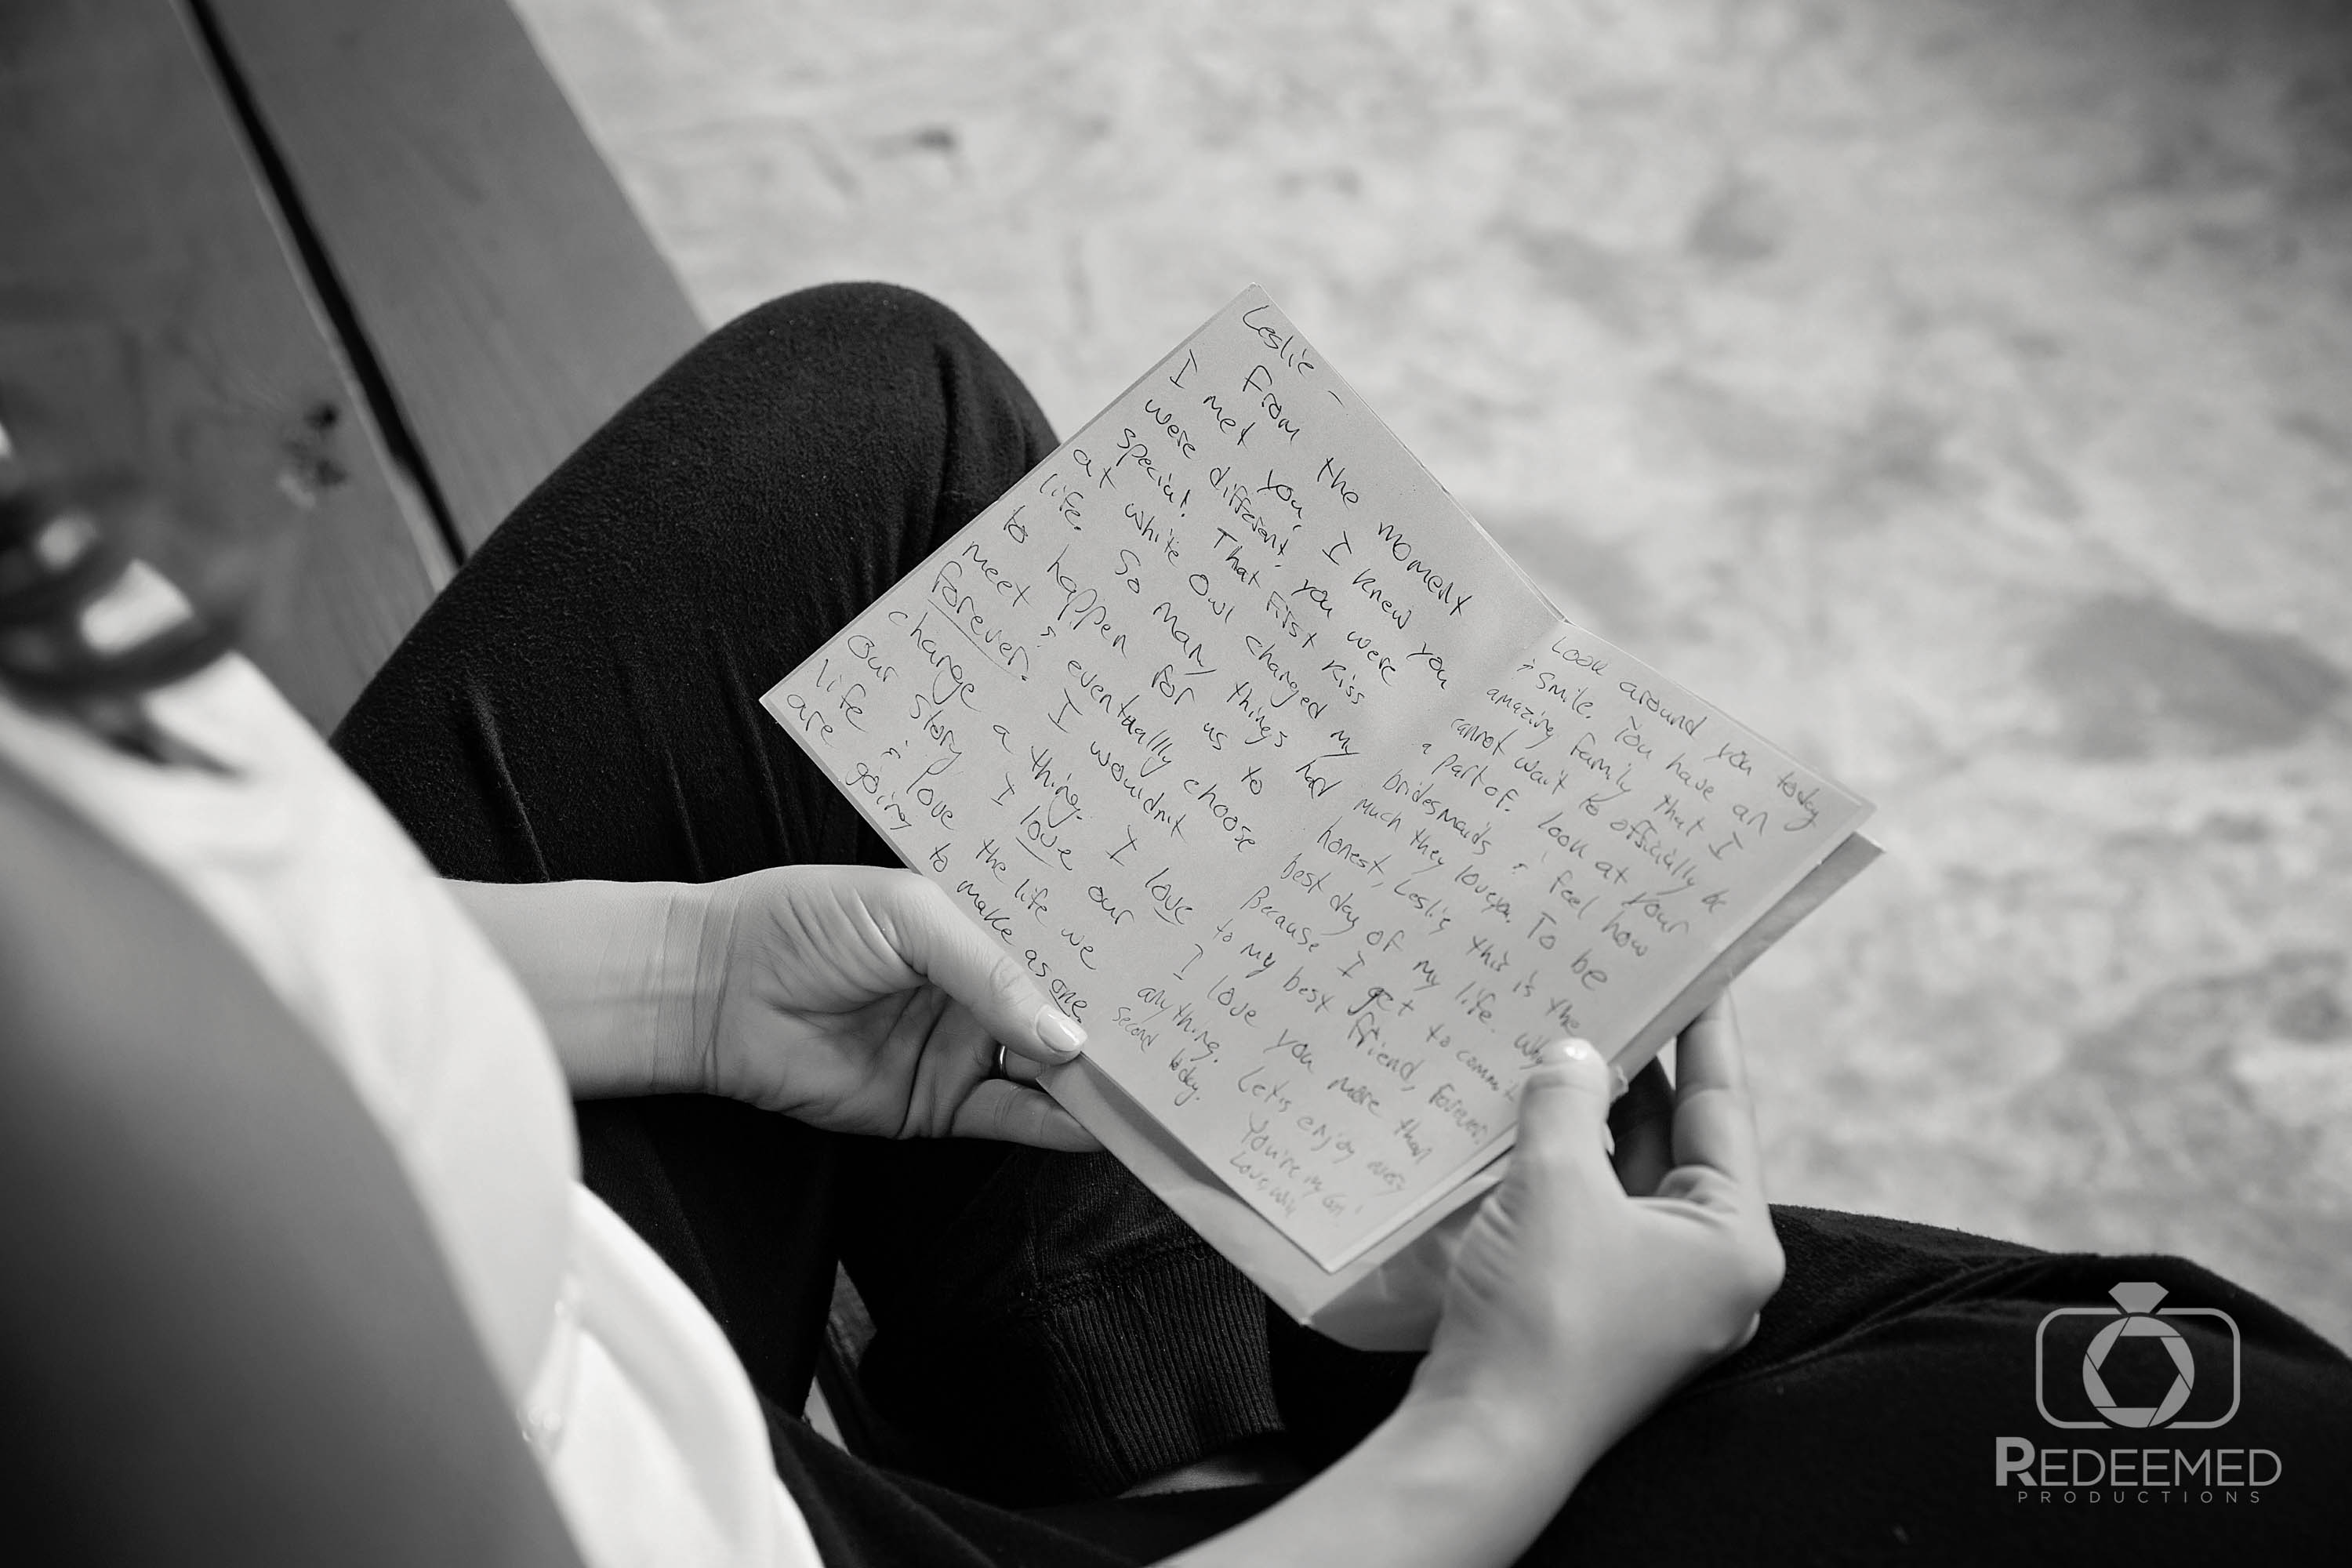 Leslie -
From the moment
I met you, I knew you
were different, you were
special. That First Kiss
at White Owl changed my
life. So many things had
to happen for us to
meet & eventually choose
forever. I wouldn't
change a thing. I love
our story. I love our
life & love the life we
are going to make as one.
Look around you today
& smile. You have an
amazing family that I
cannot wait to officially be
a part of. Look at your
bridesmaids & feel how
much they love you. To be
honest, Leslie, this is the
best day of my life. Why
Because I get to commit
to my best friend, forever.
I love you more than
anything. Let's enjoy every
second today.
You're my
Love, Will
REDEEMED
PRODUCTIONS